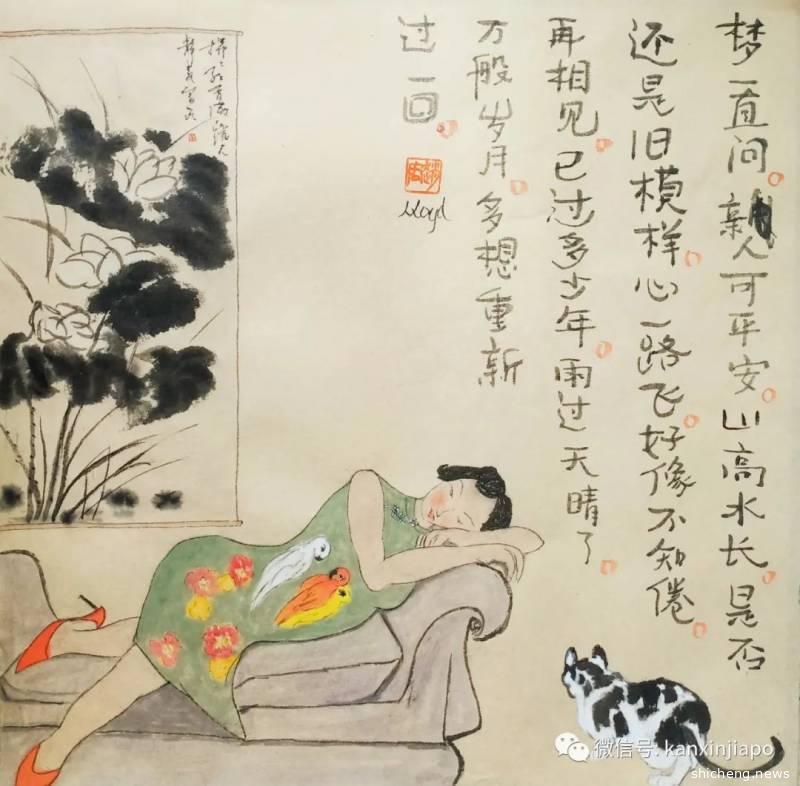 梦一直问。亲人可平安。山高水长。是否
还是旧模样。心一路飞。好像不知倦。
再相见。已过多少年。雨过天晴了。
万般岁月。多想重新
过一回。
Lloyd
微信号: kanxinjiapo
shicheng.news